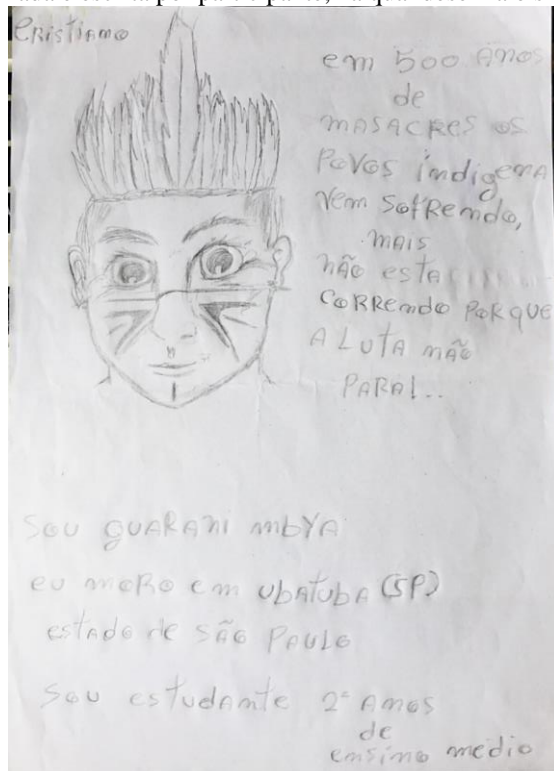 CRistiamo
em 500 Anos
de
mAsACRes os
Povos indigenA
Vem SofRendo,
mais
não esta
CoRRendo PoRque
A LutA não
PARA!..
Sou guARAni mbYA
eu moRo em ubAtubA (SP)
estado de São PAulo
Sou estudAnte 2º Anos
de
ensino medio